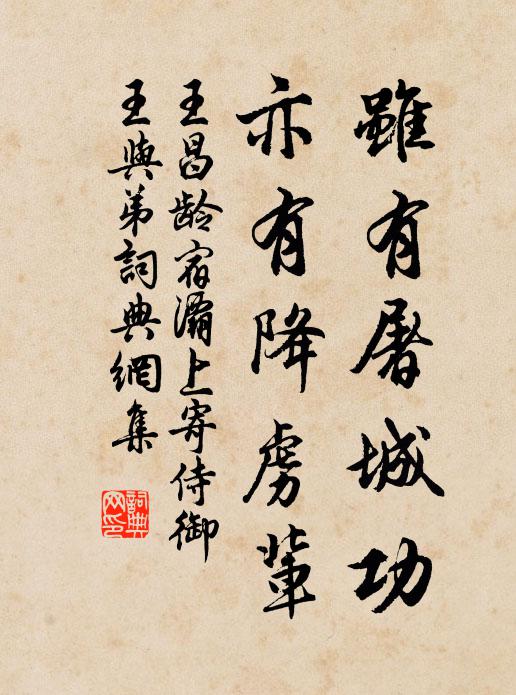 雖有屠城功
亦有降虜輩
王昌齡宿灞上寄侍御
王與弟詞典網集
詞典网印